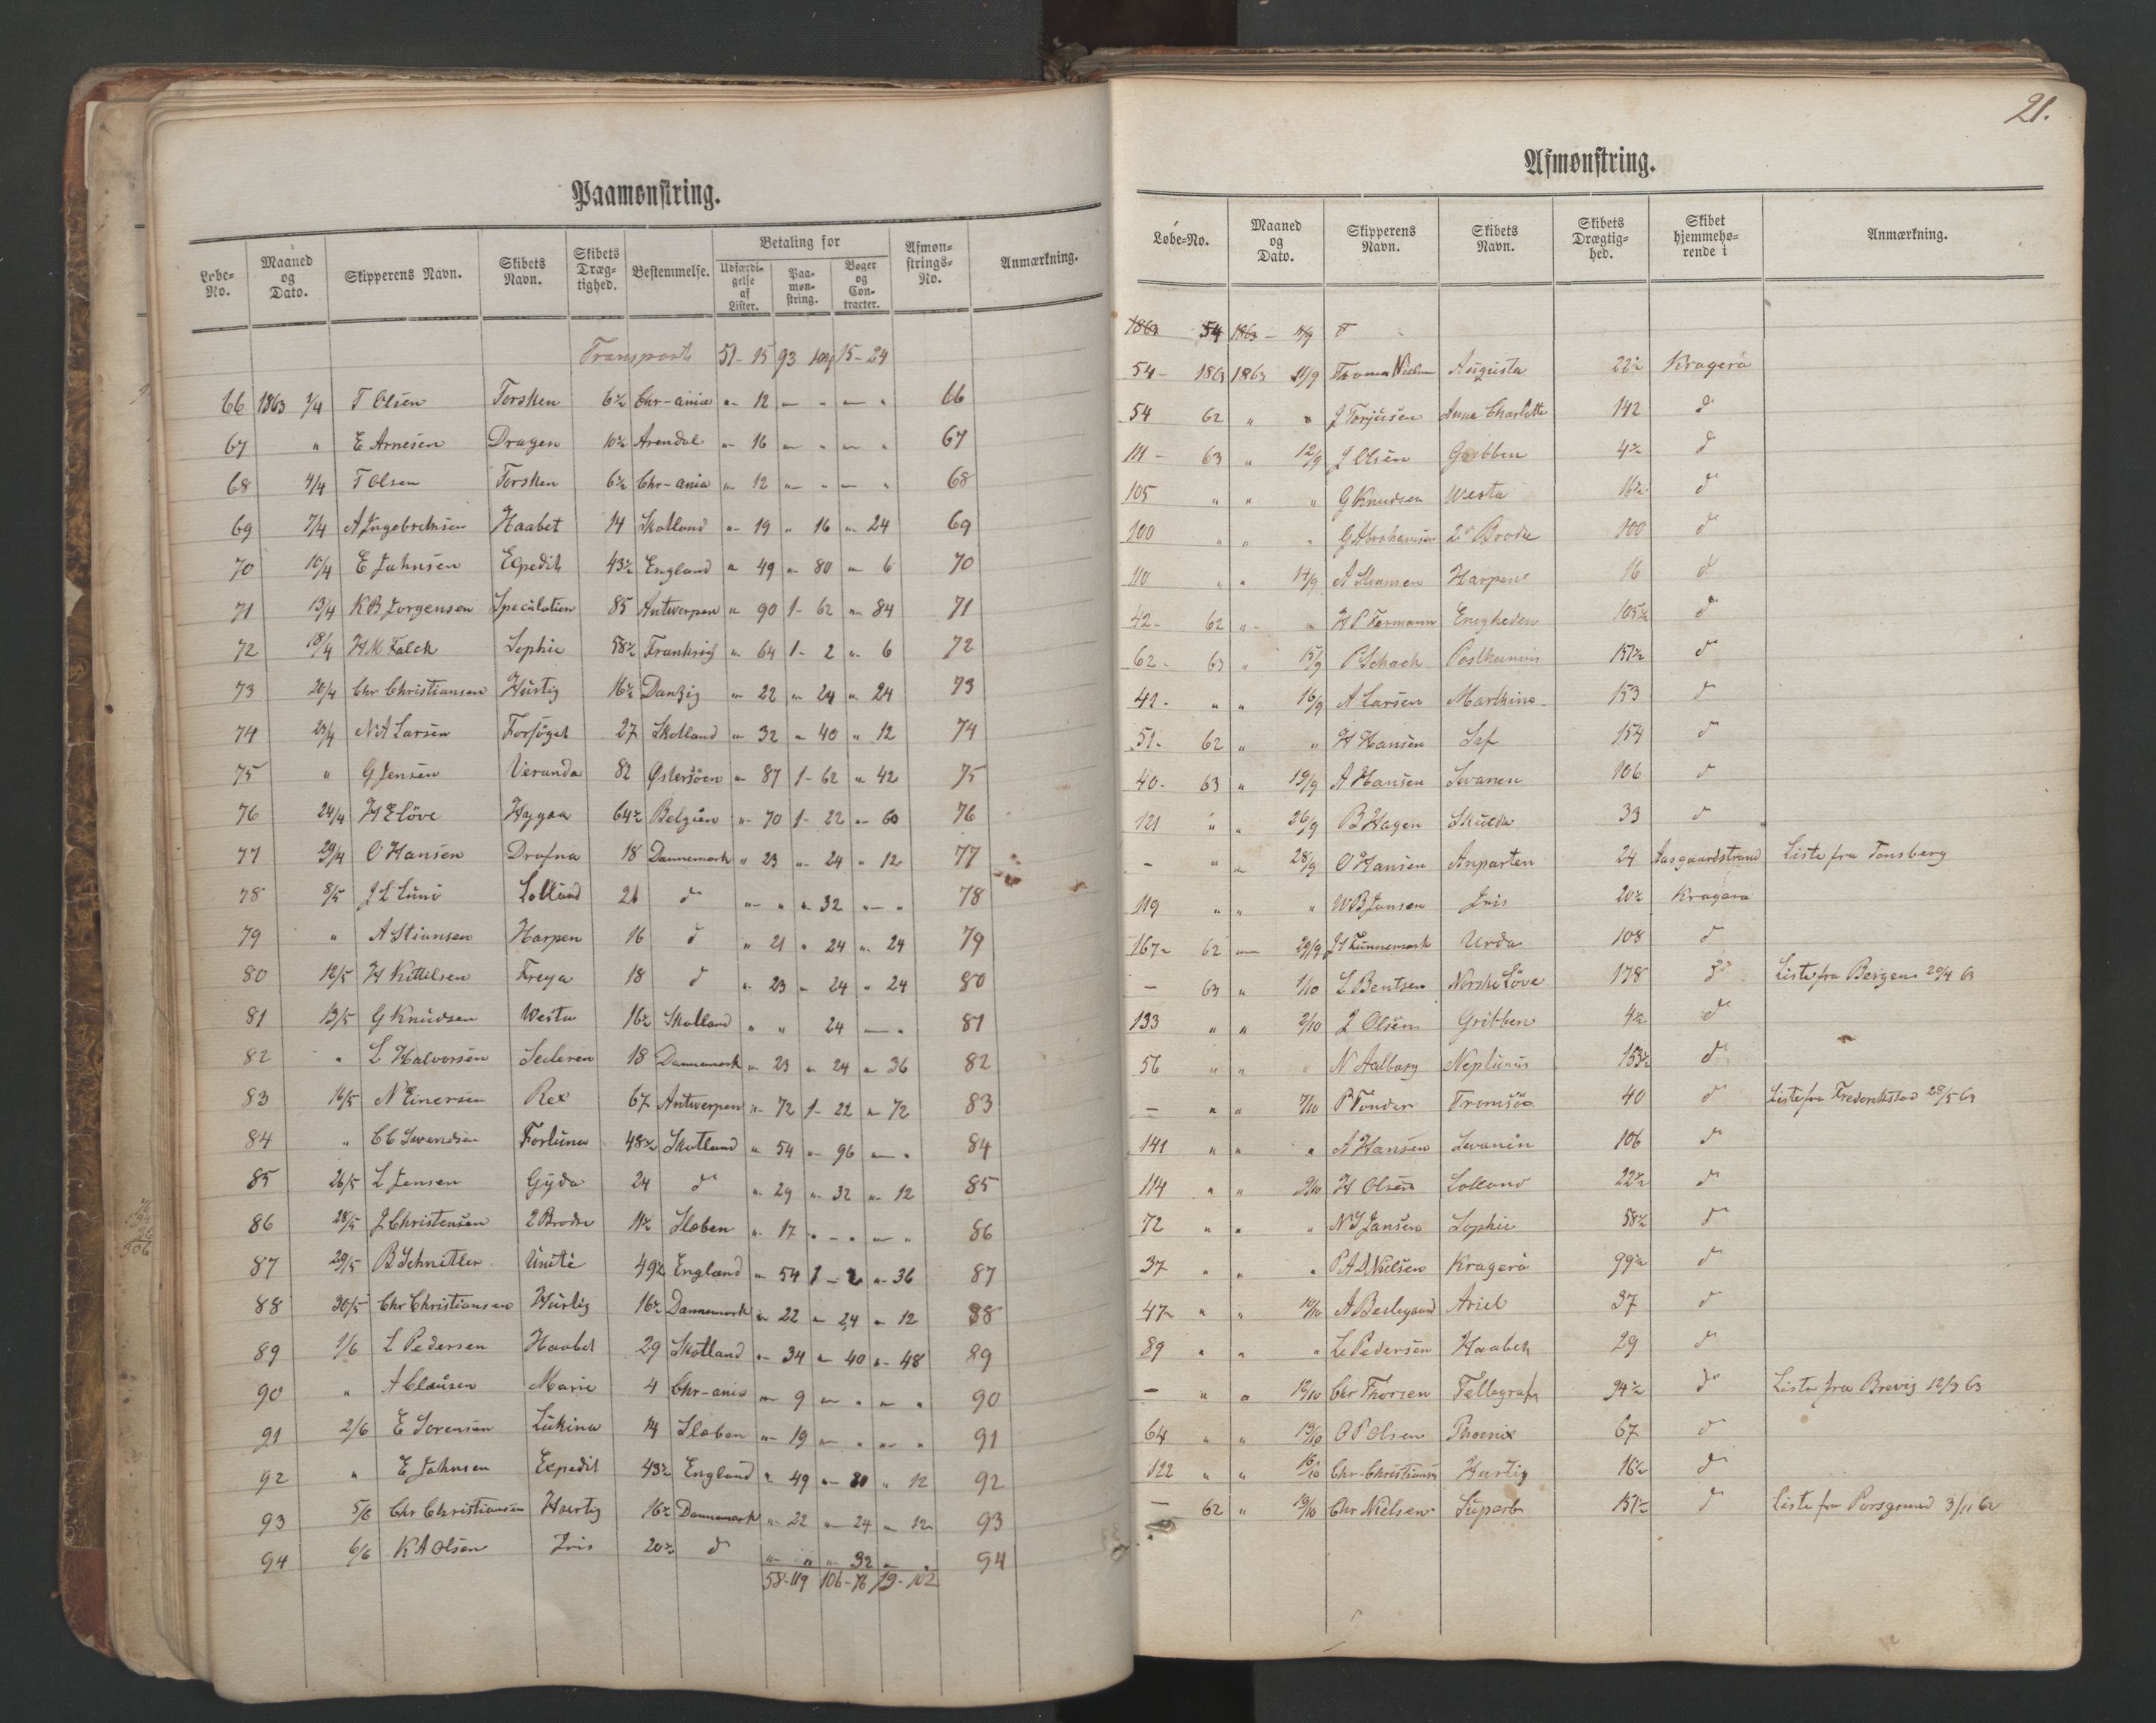 Paamønstring.
Løbe-No. Maaned og Dato. Skipperens Navn. Skibets Navn. Skibets Dræg-tighed. Bestemmelse. Betaling for Udfærdi-gelse af Lister. Paa-møn-string. Bøger og Con-tracter. Afmøn-strings-No. Anmærkning.
Transport 51 - 15 93 104 15 - 24
66 1863 1/4 T Olsen Torsken 6½ Chr-ania " 12 — " — " 66
67 " E Arnesen Dragen 10½ Arendal " 16 — " — " 67
68 4/4 T Olsen Torsken 6½ Chr-ania " 12 — " — " 68
69 7/4 A Ingebretsen Haabet 14 Skotland " 19 " 16 " 24 69
70 10/4 E Jahnsen Expedit 43½ England " 49 " 80 " 6 70
71 13/4 K B Jorgensen Speculation 85 Antwerpen " 90 1 - 62 " 84 71
72 18/4 H M Falck Sophie 58½ Frankrig " 64 1 - 2 " 6 72
73 20/4 Chr Christiansen Hurtig 16½ Danzig " 22 " 24 " 24 73
74 23/4 N A Larsen Forsöget 27 Skotland " 32 " 40 " 12 74
75 " G Jensen Veranda 82 Østersöen " 87 1 - 62 " 42 75
76 24/4 H E Löve Hygea 64½ Belgien " 70 1 - 22 " 60 76
77 29/4 O Hansen Drafna 18 Dannemark " 23 " 24 " 12 77
78 8/5 J L Lund Lolland 21 d " " " 32 " — " 78
79 " A Stiansen Harpen 16 d " 21 " 24 " 24 79
80 12/5 H Kittelsen Freya 18 d " 23 " 24 " 24 80
81 13/5 G Knudsen Westa 16½ Skotland " " 24 — " 81
82 " L Halvorsen Seileren 18 Dannemark " 23 " 24 " 36 82
83 16/5 N Einersen Rex 67 Antwerpen " 72 1 - 22 " 72 83
84 " C C Svendsen Fortuna 48½ Skotland " 54 " 96 — " 84
85 26/5 L Jensen Gyda 24 d " 29 " 32 " 12 85
86 28/5 J Christensen 2 Brodre 11½ Staben " 17 " — " — " 86
87 29/5 B Schnitler Unité 49½ England " 54 1 - 2 " 36 87
88 30/5 Chr Christiansen Hurtig 16½ Dannemark " 22 " 24 " 12 88
89 1/6 L Pedersen Haabet 29 Skotland " 34 " 40 " 48 89
90 " A Clausen Marie 4 Chr-ania " 9 — " — " 90
91 2/6 E Sorensen Lukina 14 Staben " 19 — " — " 91
92 " E Jahnsen Expedit 43½ England " 49 " 80 " 12 92
93 5/6 Chr Christiansen Hurtig 16½ Dannemark " 22 " 24 " 12 93
94 6/6 K A Olsen Iris 20½ d " " " 32 — " 94
58-119 106-76 19-102
21.
Afmønstring.
Løbe-No. Maaned og Dato. Skipperens Navn. Skibets Navn. Skibets Drægtig-hed. Skibet hjemmehø-rende i Anmærkning.
1863 54 1863 — 11/9 T
54 - 1863 1863 11/9 Thomas Nielsen Augusta 22½ Kragerø
54 62 " " J Torjusen Anna Charlotte 142 d
111 - 63 " 12/9 J Olsen Gribben 4½ d
105 " " " G Knudsen Westa 16½ d
100 " " " G Abrahamsen 2de Brodre 100 d
110 " " 14/9 A Stiansen Harpen 16 d
42 - 62 " " H P Fermann Enigheden 105½ d
62 - 63 " 15/9 P Schack 151½ d
41 - " " 16/9 A Larsen Marthino 153 d
51 - 62 " " H Hansen Leif 154 d
40 - 63 " 19/9 A Hansen Svanen 106 d
121 " " 26/9 B Hagen Skulda 33 d
— " " 28/9 O Hansen Anparten 24 Aasgaardstrand Liste fra Tonsberg
119 " " " W B Jansen Iris 20½ Kragerø
167 - 62 — 29/9 Urda 108 d
— 63 " 1/10 L Bentsen Norske Löve 178 d Liste fra Bergen 29/4 63
133 " " 2/10 J Olsen Gribben 4½ d
56 " " " N Aalborg Neptunus 153½ d
— " " 7/10 P Tonder Tromsöe 40 d Liste fra Frederikstad 28/5 63
141 " " " A Hansen Svanen 106 d
114 " " 9/10 H Olsen Lolland 22½ d
72 " " " N S Jansen Sophie 58½ d
37 " " " P A D Nielsen Kragerø 99½ d
47 " " 10/10 A Bestegaard Ariel 37 d
89 " " " L Pedersen Haabet 29 d
— " " 12/10 Chr Thorsen Tellegraf 94½ d Liste fra Brevig 12/3 63
64 " " 13/10 O P Olsen Phoenix 67 d
122 " " 16/10 Chr-Christiansen Hurtig 16½ d
— 62 " 19/10 Chr Nielsen Superb 151½ d Liste fra Porsgrund 3/11 62